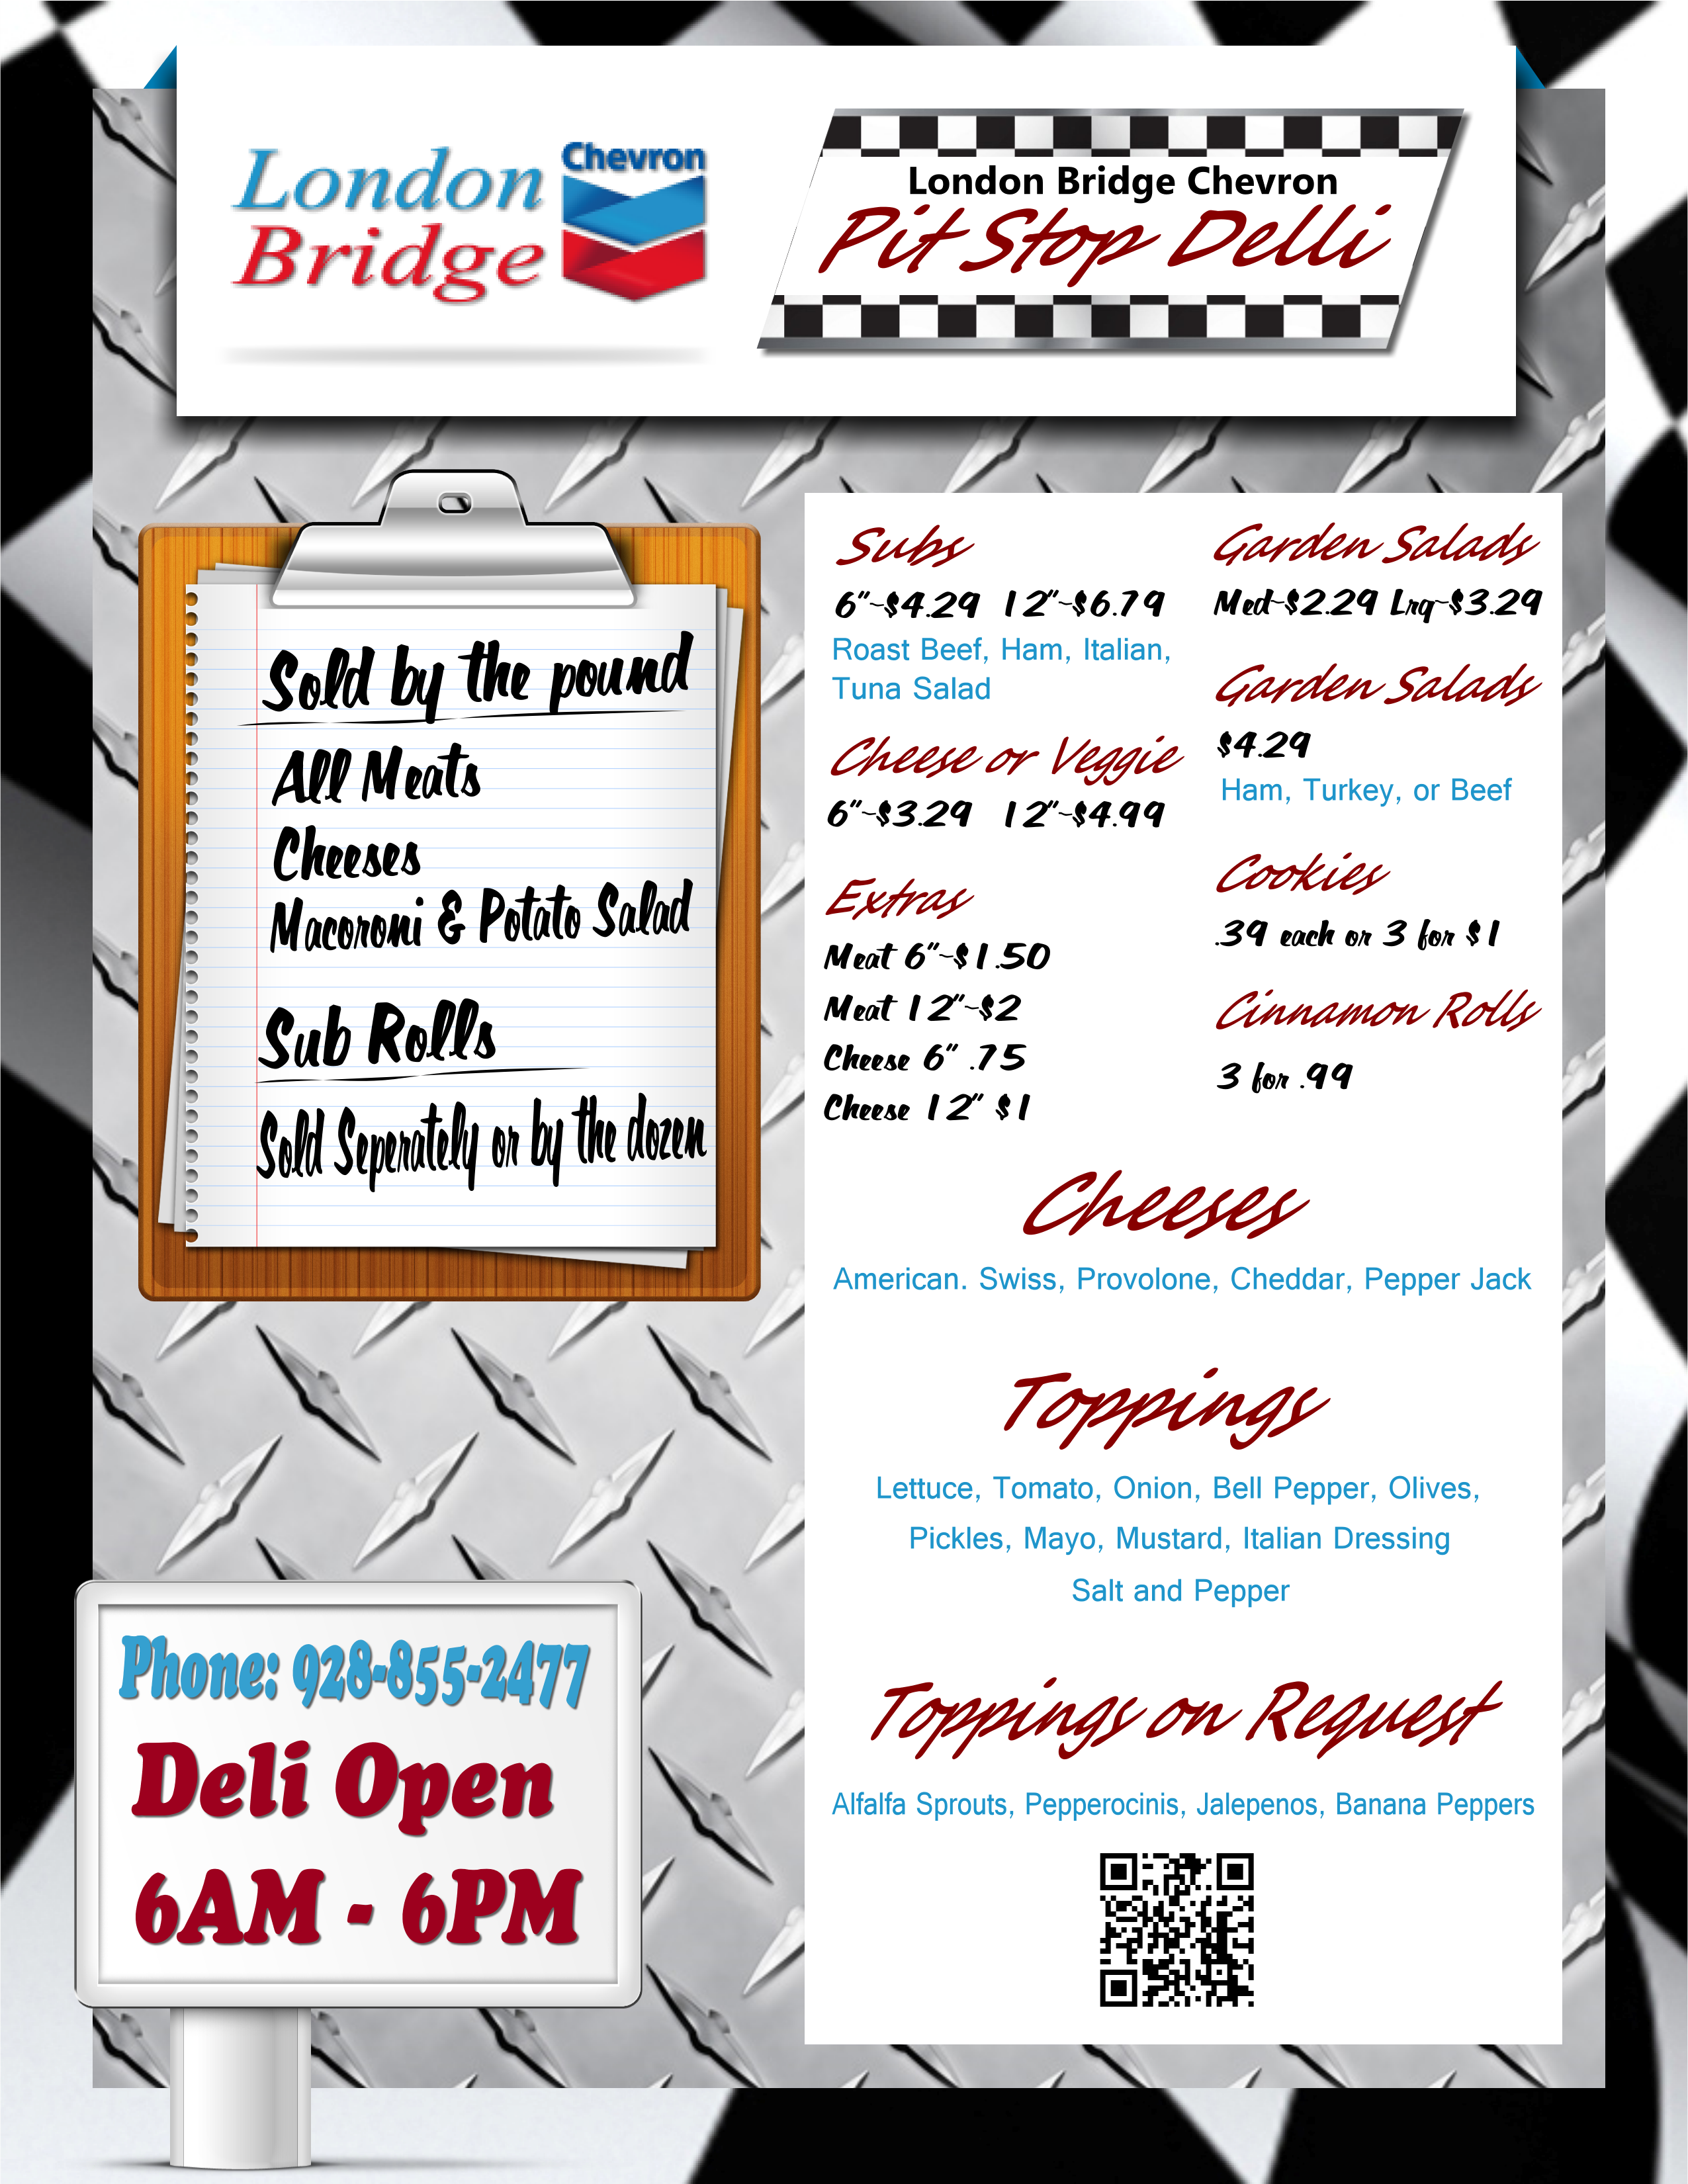 London
Bridge
Chevron
London Bridge Chevron
Pit Stop Delli
Sold by the pound
All Meats
Cheeses
Macoroni & Potato Salad
Sub Rolls
Sold Seperately or by the dozen
Subs
6"~$4.29 12"~$6.79
Roast Beef, Ham, Italian,
Tuna Salad
Cheese or Veggie
6"~$3.29 12"~$4.99
Extras
Meat 6"~$1.50
Meat 12"~$2
Cheese 6" .75
Cheese 12" $1
Garden Salads
Med~$2.29 Lrg~$3.29
Garden Salads
$4.29
Ham, Turkey, or Beef
Cookies
.39 each or 3 for $1
Cinnamon Rolls
3 for .99
Cheeses
American. Swiss, Provolone, Cheddar, Pepper Jack
Toppings
Lettuce, Tomato, Onion, Bell Pepper, Olives,
Pickles, Mayo, Mustard, Italian Dressing
Salt and Pepper
Toppings on Request
Alfalfa Sprouts, Pepperocinis, Jalepenos, Banana Peppers
Phone: 928-855-2477
Deli Open
6AM - 6PM